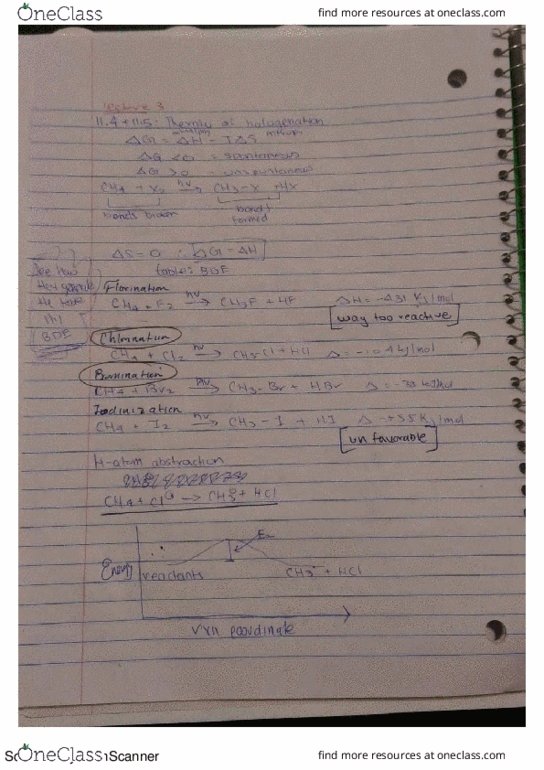 OneClass
find more resources at oneclass.com
Lecture 3
11.4 + 11.5: Thermo of halogenation
enthalpy entropy
ΔG = ΔH - TΔS
ΔG < 0 = spontaneous
ΔG > 0 - unspontaneous
CH4 + X2 hv→ CH3-X + HX
bonds broken bonds formed
ΔS = 0 ∴ ΔG = ΔH
table: BDE
See how
they
the table
BDE
Florination
CH4 + F2 hv→ CH3F + HF ΔH = -431 kJ/mol
way too reactive
Chlorination
CH4 + Cl2 hv→ CH3Cl + HCl Δ = -104 kJ/mol
Bromination
CH4 + Br2 hv→ CH3-Br + HBr Δ = -33 kJ/mol
Iodinization
CH4 + I2 hv→ CH3-I + HI Δ = +55 kJ/mol
unfavorable
H-atom abstraction
CH4 + Cl° → CH3° + HCl
Ea
Energy
reactants
CH3 + HCl
rxn coordinate
OneClass
Scanner
find more resources at oneclass.com